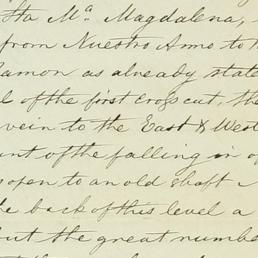 Sta Mª Magdalena,
from Nuestro Amo to th
Ramon as already state
l of the first cross cut, the
vein to the East & West
unt of the falling in of
open to an old shaft
he back of this level a
but the great numbe